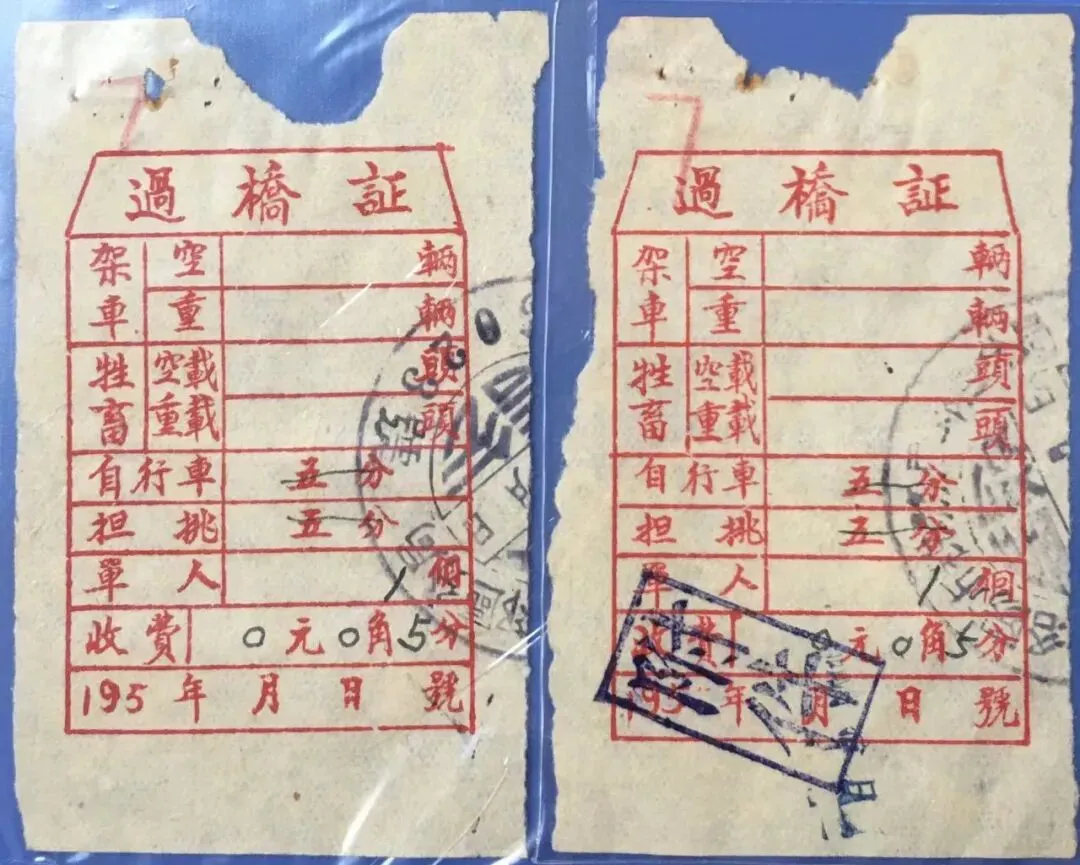 過橋証
架車 空 輛
重 輛
牲畜 空載 頭
重載 頭
自行車 五分
担挑 五分
單人 1 個
收費 0元0角5分
195 年 月 日 號
過橋証
架車 空 輛
重 輛
牲畜 空載 頭
重載 頭
自行車 五分
担挑 五分
單人 1 個
收費 0元0角5分
195 年 月 日 號